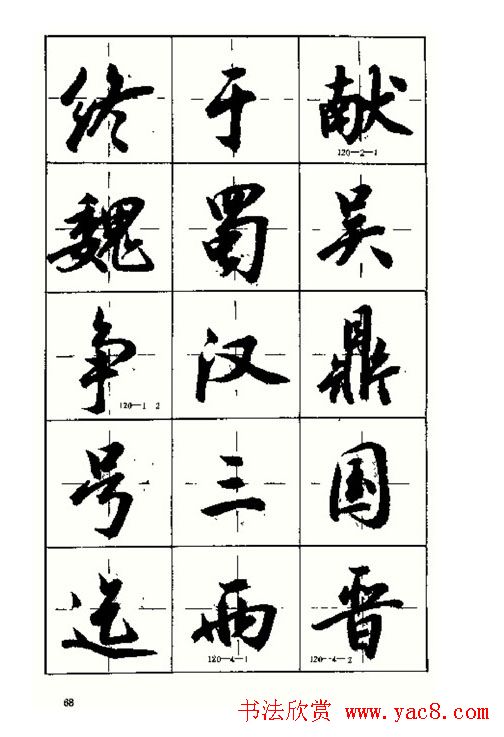 终于献
120—2—1
魏蜀吴
争汉鼎
120—1 2
号三国
迄两晋
120—4—1
120—4—2
68
书法欣赏 www.yac8.com